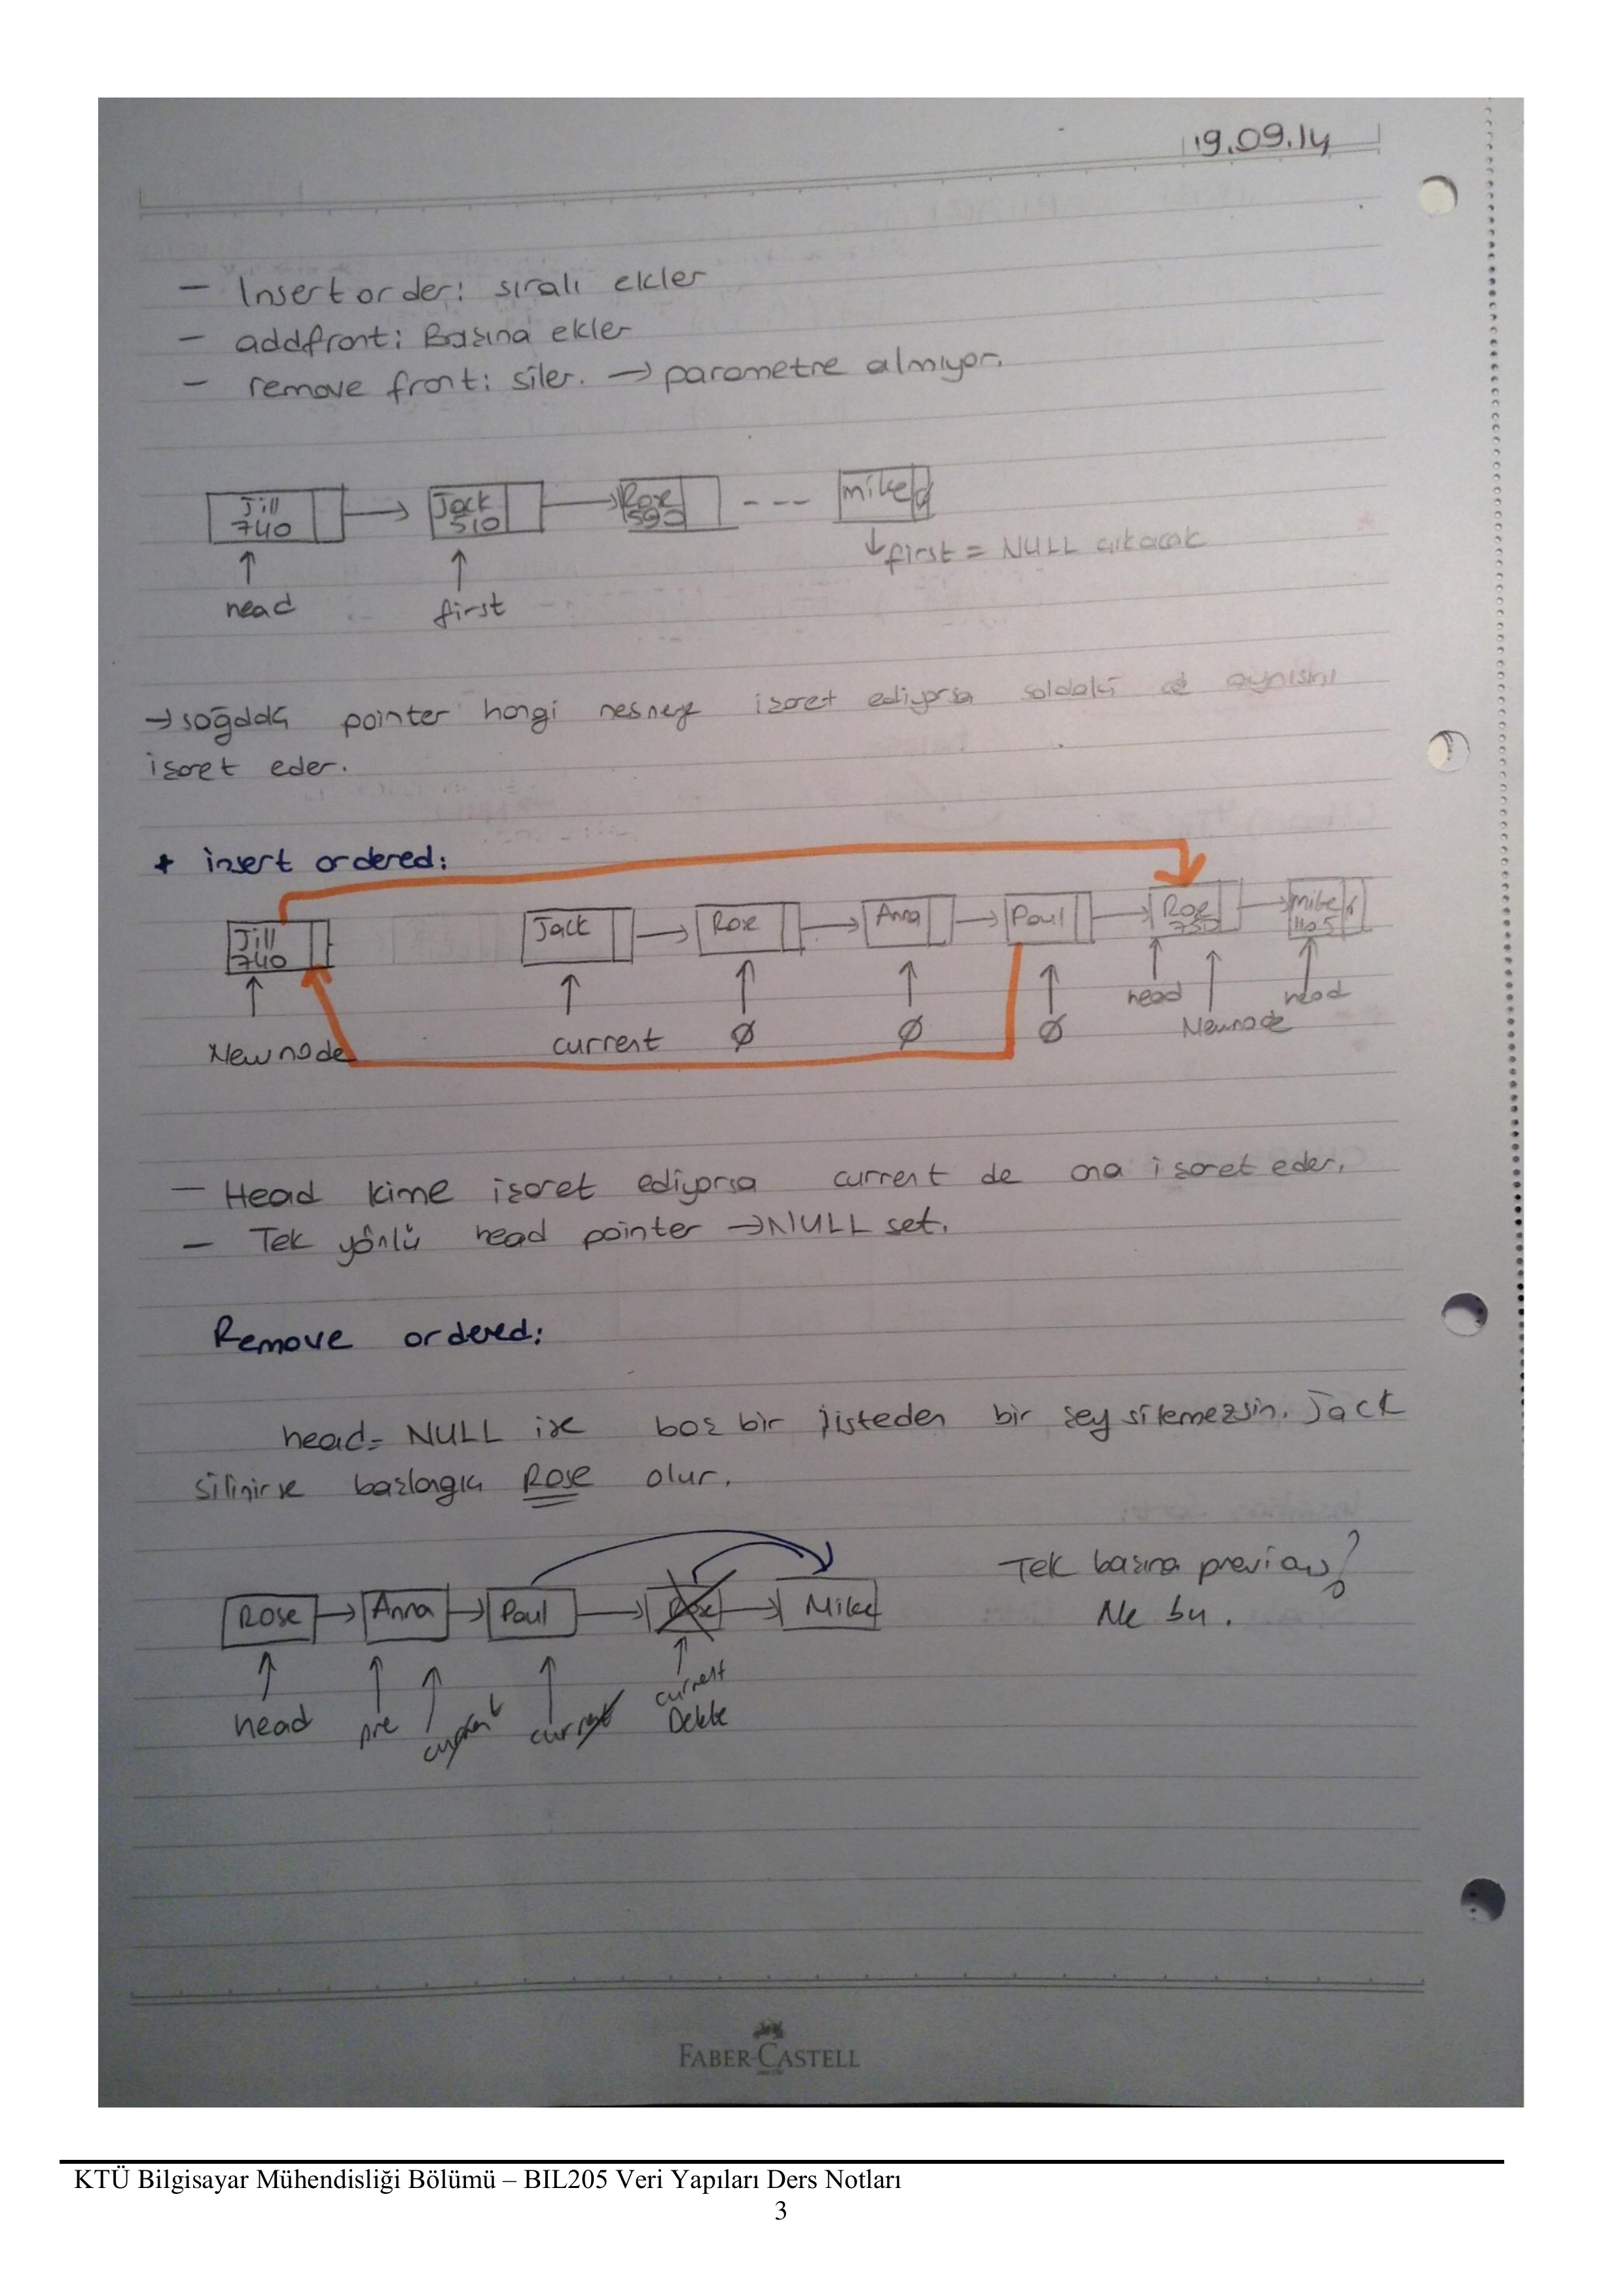 19.09.14
- Insert order: sıralı ekler
- addfront: Başına ekler
- remove front: siler. → parametre almıyor.
Jill 740 → Jack 510 → Rose 590 --- mike
↓ first = NULL çıkacak
head first
→ sağdaki pointer hangi nesneye işaret ediyorsa soldaki de aynısını
işaret eder.
+ insert ordered:
Jill 740 Jack → Rose → Anna → Paul → Rose 750 → mike 1105
head head
New node current Ø Ø Ø Newnode
- Head kime işaret ediyorsa current de ona işaret eder.
- Tek yönlü head pointer → NULL set.
Remove ordered:
head = NULL ise boş bir listeden bir şey silemezsin. Jack
silinirse başlangıcı Rose olur.
Tek başına previous?
Rose → Anna → Paul → Rose → Mike
Ne bu.
head pre current current current
Delete
FABER-CASTELL
KTÜ Bilgisayar Mühendisliği Bölümü – BIL205 Veri Yapıları Ders Notları
3